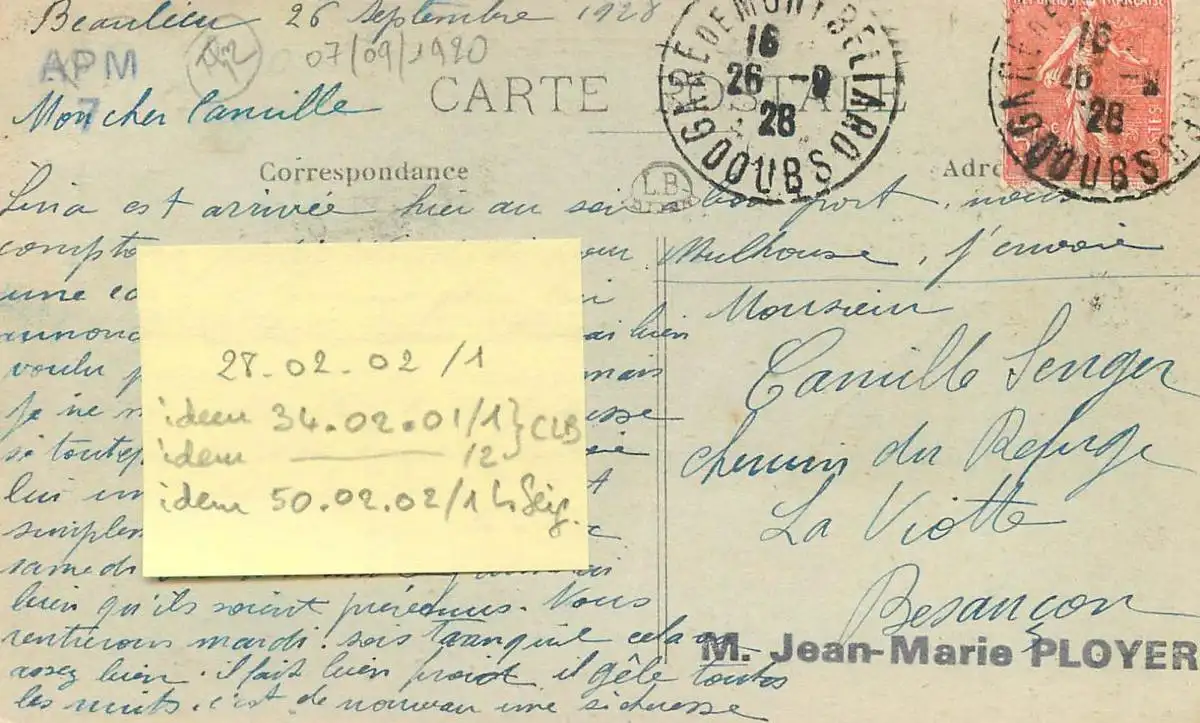 Beaulieu 26 Septembre 1928
07/09/1920
APM
7
Mon cher Camille
CARTE POSTALE
GARE DE MONTBELIARD
16
26 -9
28
DOUBS
REPUBLIQUE FRANÇAISE
16
26
28
DOUBS
Correspondance
L.B
Adr
Lina est arrivée hier au soir à bon port, nous
compto
Mulhouse, j'envoie
une ca
annonc
bien
voulu
mais
je ne
si
lui
simplem
samedi
bien qu'ils soient prévenus. Nous
rentrerons mardi. sois tranquil cela va
assez bien. il fait bien froid il gêle toutes
les nuits. c'est de nouveau une sécheresse
28.02.02/1
idem 34.02.01/1 } CLB
idem ——— /2
idem 50.02.02/1
Monsieur
Camille Senger
chemin du Refuge
La Viotte
Besançon
M. Jean-Marie PLOYER